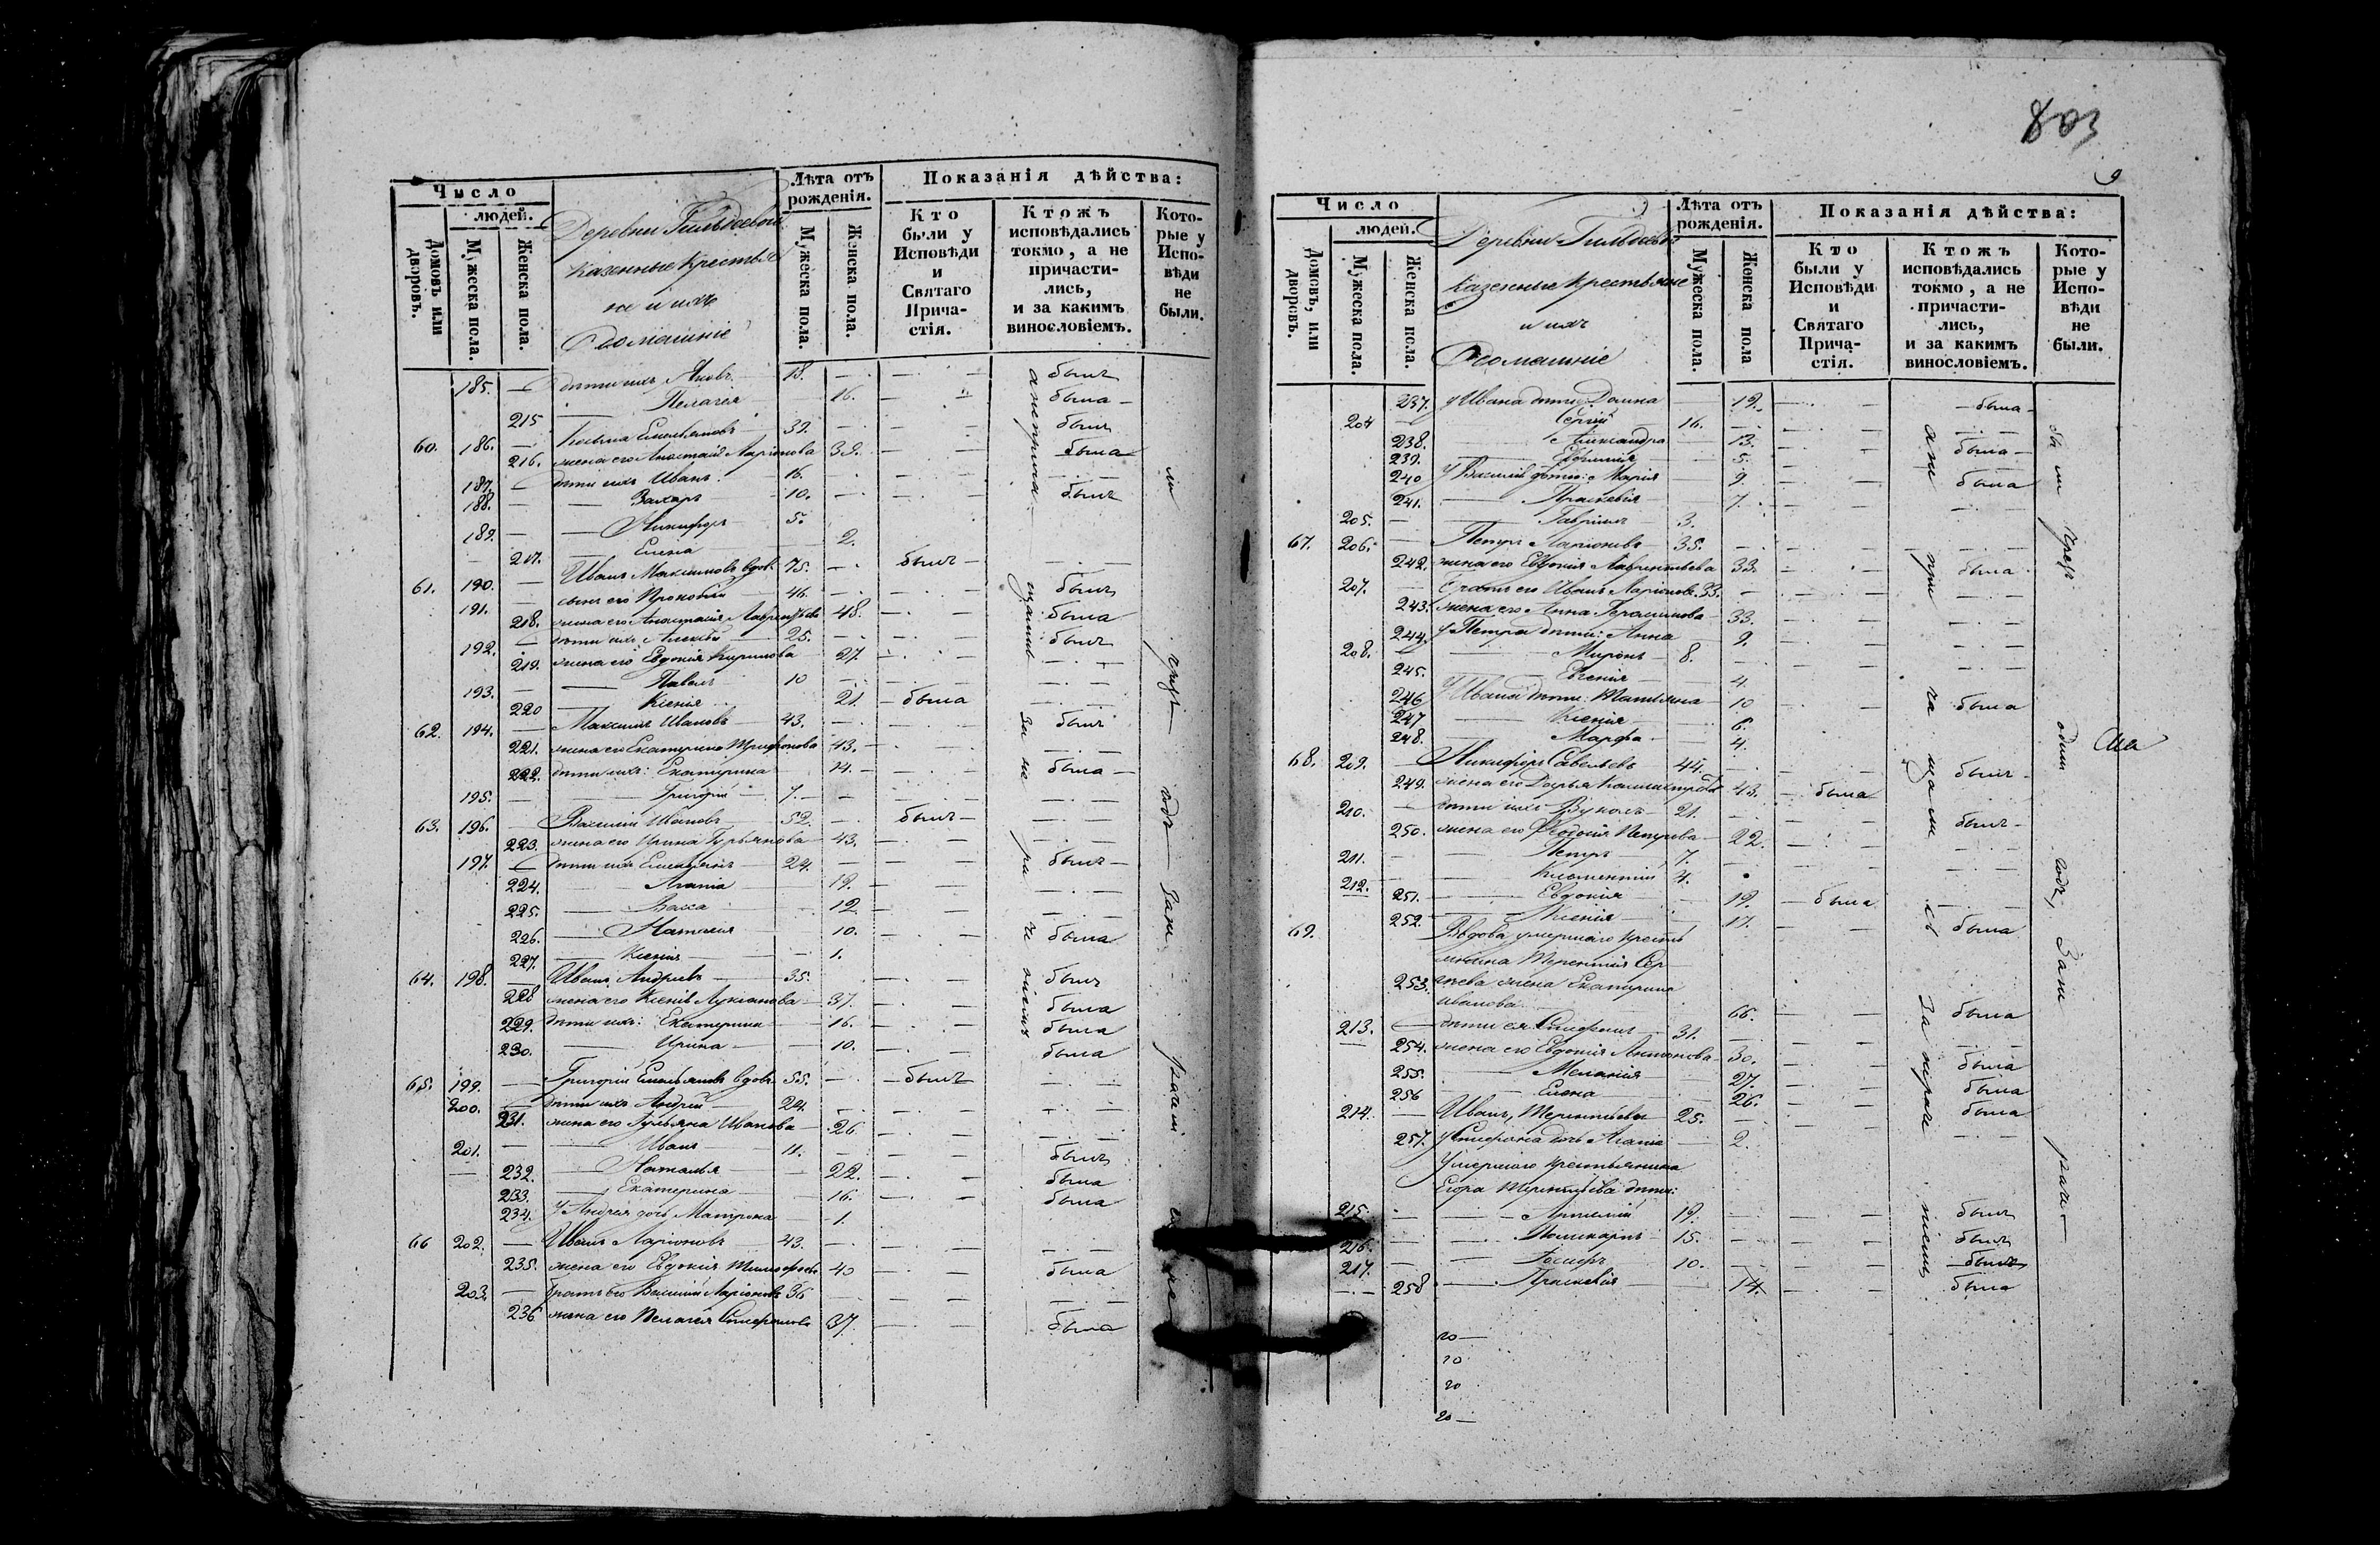 Число
людей.
Домовъ или дворовъ.
Мужеска пола.
Женска пола.
Деревни Гильдѣевой
казенные крестья
не и ихъ
Домашніе
Лѣта отъ рожденія.
Мужеска пола.
Женска пола.
Показанія дѣйства:
Кто были у Исповѣди и Святаго Прича- стія.
Ктожъ исповѣдались токмо, а не причасти- лись, и за какимъ винословіемъ.
Кото- рые у Испо- вѣди не были.
185. — дѣти ихъ Яковъ 18. былъ
215 Пелагея 16. была
60. 186. — Козьма Емельяновъ 39. былъ
216. жена его Анастасія Ларіонова 39. была
187. — дѣти ихъ Иванъ 16.
188. — Захаръ 10. былъ
189. — Никифоръ 5.
217. Елена 2.
61. 190. — Иванъ Максимовъ вдов. 75. былъ
191. — сынъ его Прокофій 46. былъ
218. жена его Анастасія Лаврентьева 48. была
192. — дѣти ихъ Алексѣй 25. былъ
219. жена его Евдокія Кирилова 27.
193. — Павелъ 10
220 Ксенія 21. была
62. 194. — Максимъ Ивановъ 43. былъ
221. жена его Екатерина Трифонова 43.
222. дѣти ихъ: Екатерина 14. была
195. — Григорій 7.
63. 196. Василій Ивановъ 52. былъ
223. жена его Ирина Гурьянова 43.
197. — дѣти ихъ Емельянъ 24. былъ
224. Агапія 19.
225. 12.
226. Наталія 10. была
227. Ксенія 1.
64. 198. — Иванъ Андреевъ 35. былъ
228 жена его Ксенія Лукіанова 37. была
229. дѣти ихъ: Екатерина 16. была
230. Ирина 10. была
65. 199. — Григорій Емельяновъ вдовъ 55. былъ
200. — дѣти ихъ Андрей 24.
231. жена его Иванова 26
201. — Иванъ 11. былъ
232. Наталья 22. была
233. Екатерина 16. была
234. У Андрея дочь Матрона 1.
66 202. — Иванъ Ларіоновъ 43.
235. жена его Евдокія Тимофеева 40 была
203. — братъ его Василій Ларіоновъ 36
236 жена его Пелагея Спиридонова 37. была
803
9
Число
людей.
Домовъ, или дворовъ.
Мужеска пола.
Женска пола.
Деревни Гильдѣевой
казенные крестьяне
и ихъ
Домашніе
Лѣта отъ рожденія.
Мужеска пола.
Женска пола
Показанія дѣйства:
Кто были у Исповѣди и Святаго Прича- стія.
Ктожъ исповѣдались токмо, а не причасти- лись, и за какимъ винословіемъ.
Кото- рые у Испо- вѣди не были.
237. У Ивана дѣти: Домна 19. была
204 — Сергій 16.
238. Александра 13. была
239. 5.
240 У Василія дѣти: Марія 9. была
241. Праскевія 7.
205. — Гавріилъ 3.
67. 206. — Петръ Ларіоновъ 35.
242. жена его Евдокія Лаврентьева 33. была
207. — братъ его Иванъ Ларіоновъ 33.
243. жена его Анна Герасимова 33.
244. У Петра дѣти: Анна 9.
208. — Миронъ 8.
245. Евгенія 4.
246 У Ивана дѣти: Татьяна 10 была
247 Ксенія 6.
248. Марфа 4.
68. 209. — Никифоръ Савельевъ 44. былъ
249. жена его Дарья 43. была
210. — дѣти ихъ Вуколъ 21. былъ
250. жена его Ѳедосія Петрова 22.
211. — Петръ 7.
212. — Климентій 4.
251. Евдокія 19. была
252. Ксенія 17. была
69. Вдова умершаго кресть
янина Терентія Сер
253. геева жена Екатерина
Иванова 66. была
213. — дѣти ея Спиридонъ 31.
254. жена его Евдокія Антонова 30. была
255. Меланія 27. была
256 Елена 26. была
214. — Иванъ Терентьевъ 25.
257. У Спиридона дочь Агапія 2.
Умершаго крестьянина
Егора Терентьева дѣти:
215. — Артемій 19. былъ
216. — Поликарпъ 15. былъ
217. — 10. былъ
258 Праскевія 14. была
20 —
20
20
20 —